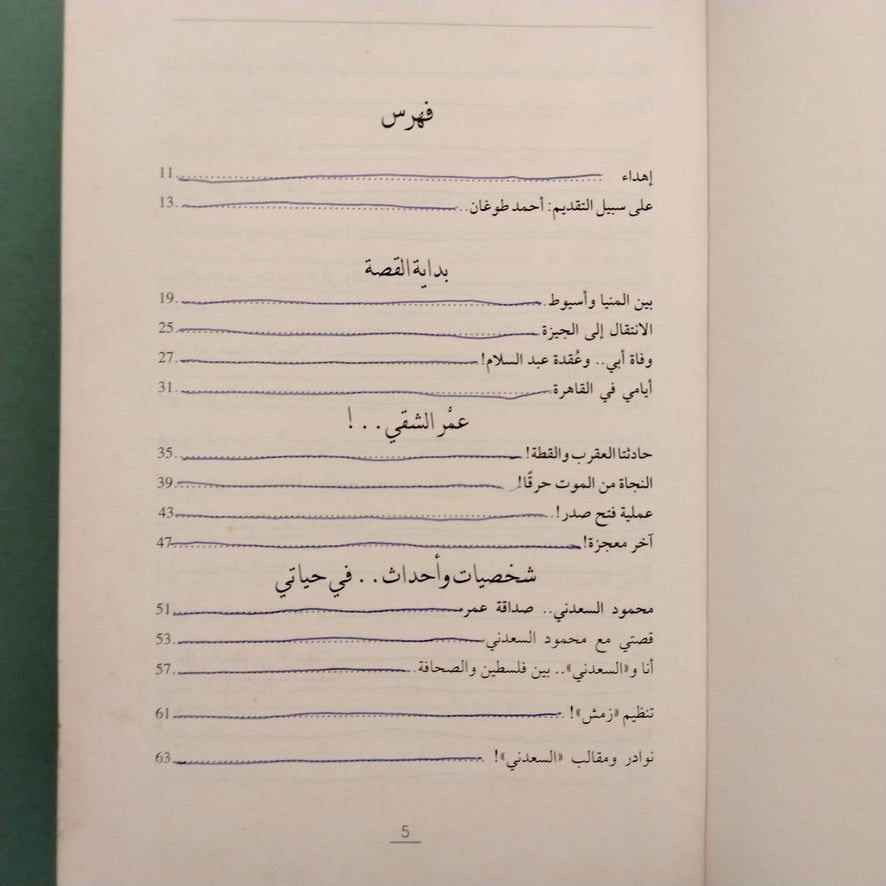 فهرس
إهداء 11
على سبيل التقديم: أحمد طوغان 13
بداية القصة
بين المنيا وأسيوط 19
الانتقال إلى الجيزة 25
وفاة أبي.. وعُقدة عبد السلام! 27
أيامي في القاهرة 31
عمْر الشقي..!
حادثتا العقرب والقطة! 35
النجاة من الموت حرقًا! 39
عملية فتح صدر! 43
آخر معجزة! 47
شخصيات وأحداث.. في حياتي
محمود السعدني.. صداقة عمر 51
قصتي مع محمود السعدني 53
أنا و«السعدني».. بين فلسطين والصحافة 57
تنظيم «زمش»! 61
نوادر ومقالب «السعدني»! 63
5